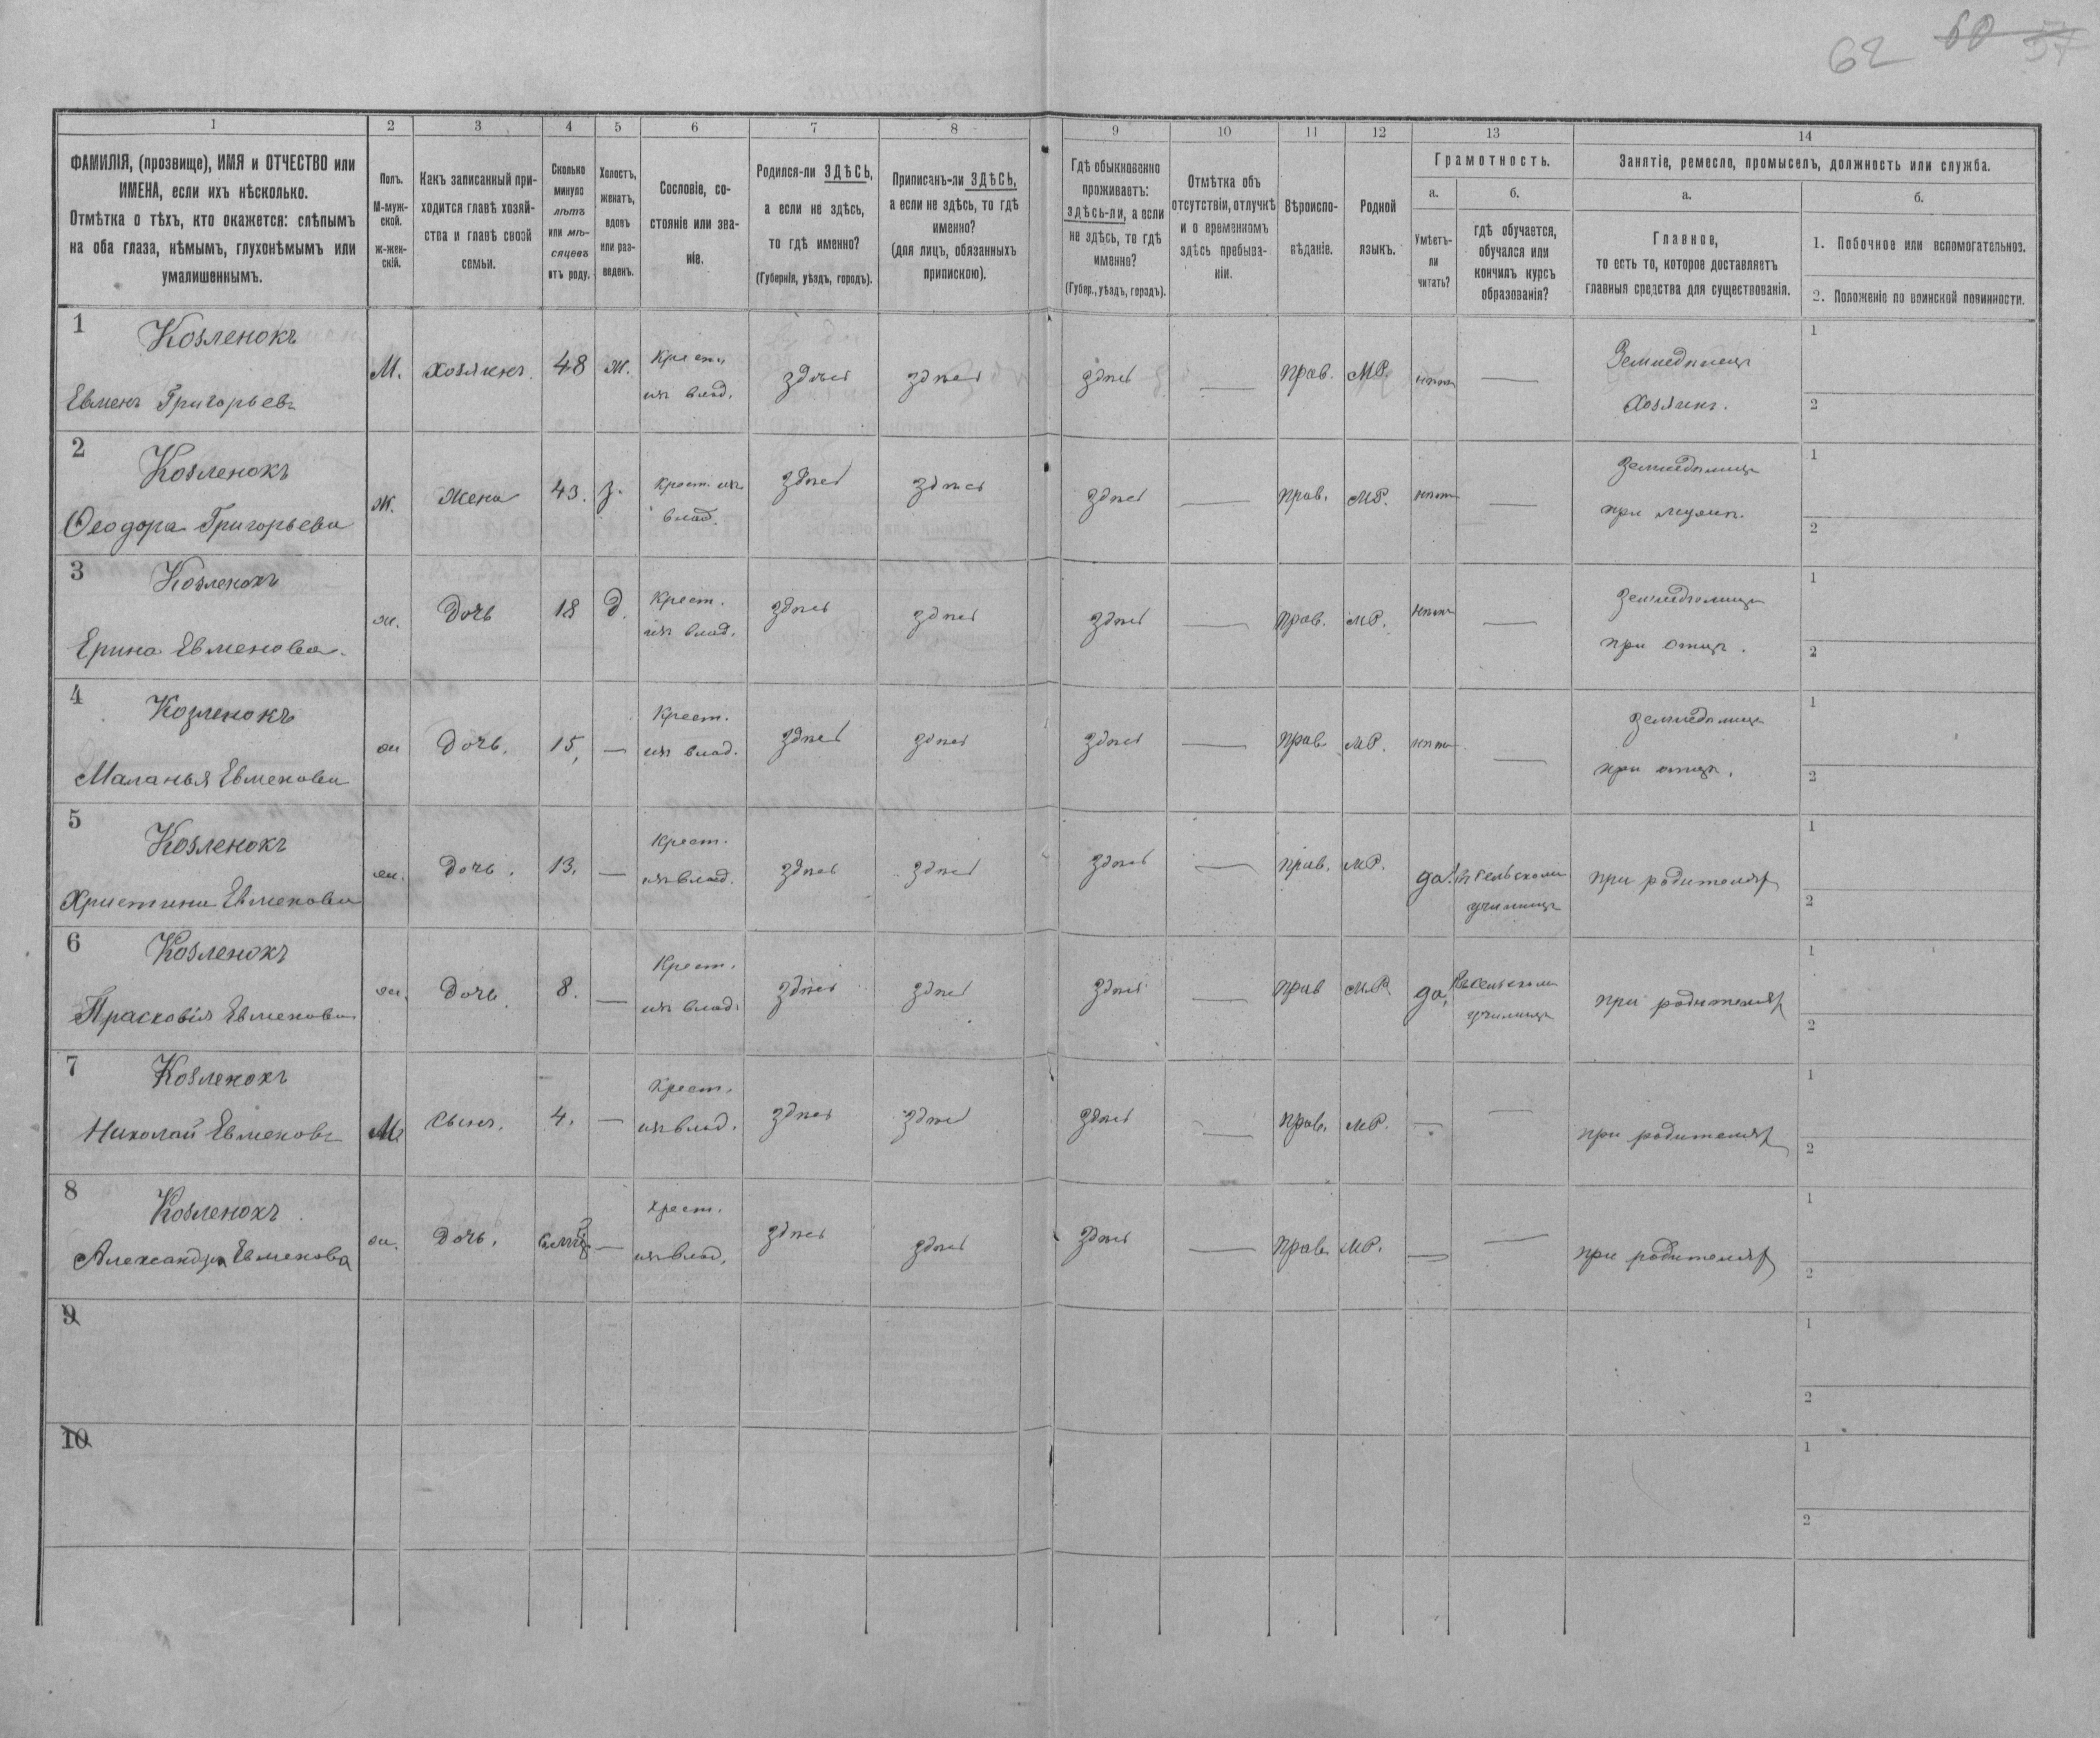 62 60 57
1 2 3 4 5 6 7 8 9 10 11 12 13 14
ФАМИЛІЯ, (прозвище), ИМЯ и ОТЧЕСТВО или
ИМЕНА, если ихъ нѣсколько.
Отмѣтка о тѣхъ, кто окажется: слѣпымъ
на оба глаза, нѣмымъ, глухонѣмымъ или
умалишеннымъ.
Полъ.
М-муж-
ской.
ж-жен-
скій.
Какъ записанный при-
ходится главѣ хозяй-
ства и главѣ своей
семьи.
Сколько
минуло
лѣтъ
или мѣ-
сяцевъ
отъ роду.
Холостъ,
женатъ,
вдовъ
или раз-
веденъ.
Сословіе, со-
стояніе или зва-
ніе.
Родился-ли ЗДѢСЬ,
а если не здѣсь,
то гдѣ именно?
(Губернія, уѣздъ, городъ).
Приписанъ-ли ЗДѢСЬ,
а если не здѣсь, то гдѣ
именно?
(для лицъ, обязанныхъ
припискою).
Гдѣ обыкновенно
проживаетъ:
здѣсь-ли, а если
не здѣсь, то гдѣ
именно?
(Губер., уѣздъ, городъ).
Отмѣтка объ
отсутствіи, отлучкѣ
и о временномъ
здѣсь пребыва-
ніи.
Вѣроиспо-
вѣданіе.
Родной
языкъ.
Грамотность.
а.
Умѣетъ-
ли
читать?
б.
гдѣ обучается,
обучался или
кончилъ курсъ
образованія?
Занятіе, ремесло, промыселъ, должность или служба.
а.
Главное,
то есть то, которое доставляетъ
главныя средства для существованія.
б.
1. Побочное или вспомогательное.
2. Положеніе по воинской повинности.
1 Козленокъ
Евменъ Григорьевъ
М. хозяинъ 48 ж. Крест.
изъ влад. здѣсь здѣсь здѣсь — прав. МР. нѣтъ — Земледѣлецъ
Хозяинъ.
1
2
2 Козленокъ
Ѳеодора Григорьева
ж. жена 43. з. Крест. изъ
влад. здѣсь здѣсь здѣсь — прав. МР. нѣтъ — земледѣлица
при мужѣ.
1
2
3 Козленокъ
Ерина Евменова.
ж. Дочь 18 д. Крест.
изъ влад. здѣсь здѣсь здѣсь — прав. МР. нѣтъ — земледѣлица
при отцѣ.
1
2
4 Козленокъ
Маланья Евменова
ж Дочь. 15, — Крест.
изъ влад. здѣсь здѣсь здѣсь — прав. МР. нѣтъ — земледѣлица
при отцѣ.
1
2
5 Козленокъ
Христина Евменова
ж. Дочь. 13. — Крест.
изъ влад. здѣсь здѣсь здѣсь — прав. МР. да. въ сельскомъ
училищѣ при родителяхъ
1
2
6 Козленокъ
Прасковія Евменова
ж. Дочь. 8. — Крест.
изъ влад. здѣсь здѣсь здѣсь — прав МР. да, въ сельскомъ
училищѣ при родителяхъ
1
2
7 Козленокъ
Николай Евменовъ
М. сынъ. 4. — Крест.
изъ влад. здѣсь здѣсь здѣсь — прав. МР. — — при родителяхъ
1
2
8 Козленокъ
Александра Евменова
ж. Дочь. — крест.
изъ влад. здѣсь здѣсь здѣсь — прав. МР. — — при родителяхъ
1
2
9
1
2
10
1
2